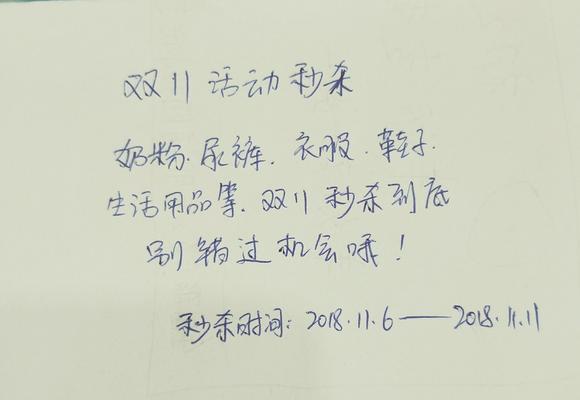 双11活动秒杀
奶粉.尿裤.衣服.鞋子.
生活用品等.双11秒杀到底
别错过机会哦！
秒杀时间：2018.11.6——2018.11.11